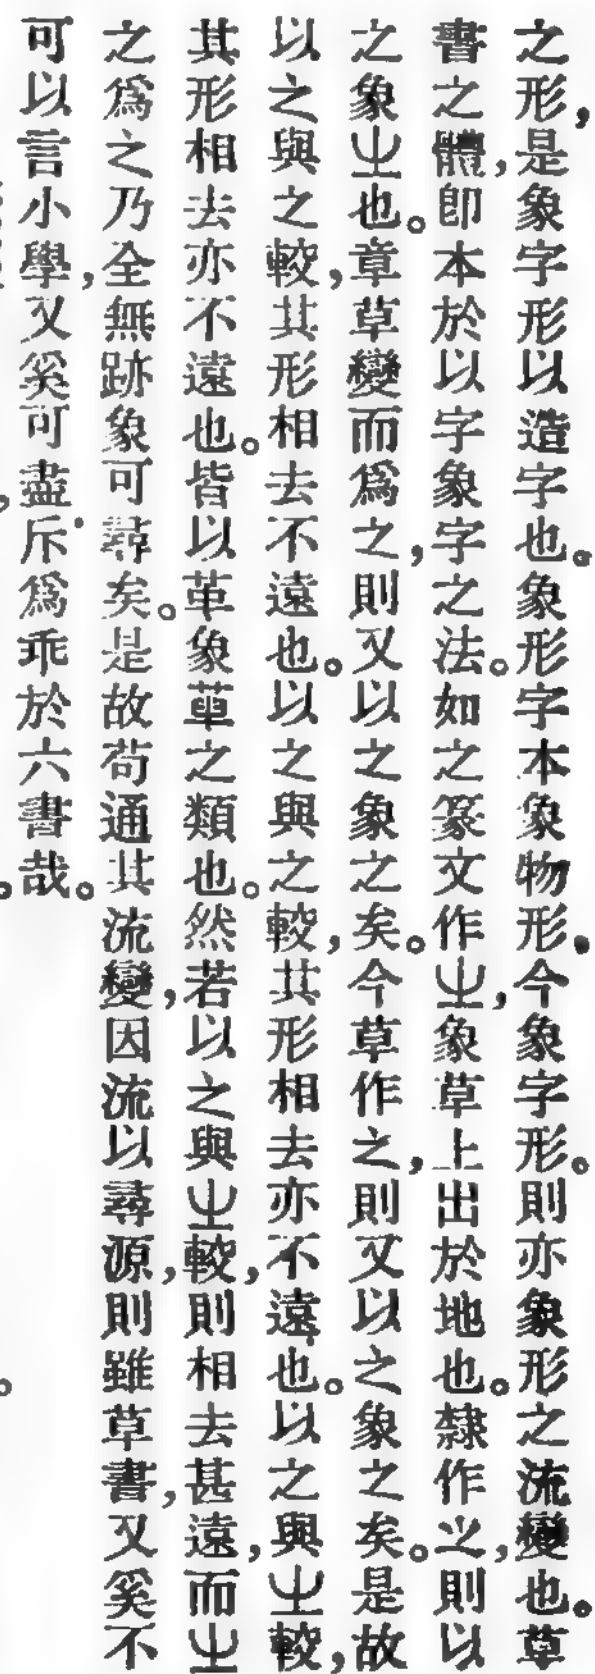 之形，是象字形以造字也。象形字本象物形。今象字形。則亦象形之流變也。草
書之體，卽本於以字象字之法。如之篆文作㞢，象草上出於地也。隸作㞢，則以
之象㞢也。章草變而爲之，則又以之象之矣。今草作之，則又以之象之矣。是故
以之與之較，其形相去不遠也。以之與之較，其形相去亦不遠也。以之與㞢較，
其形相去亦不遠也。皆以革象䓬之類也。然若以之與㞢較，則相去甚遠，而㞢
之爲之乃全無跡象可尋矣。是故茍通其流變，因流以尋源，則雖草書，又奚不
可以言小學，又奚可盡斥爲乖於六書哉。